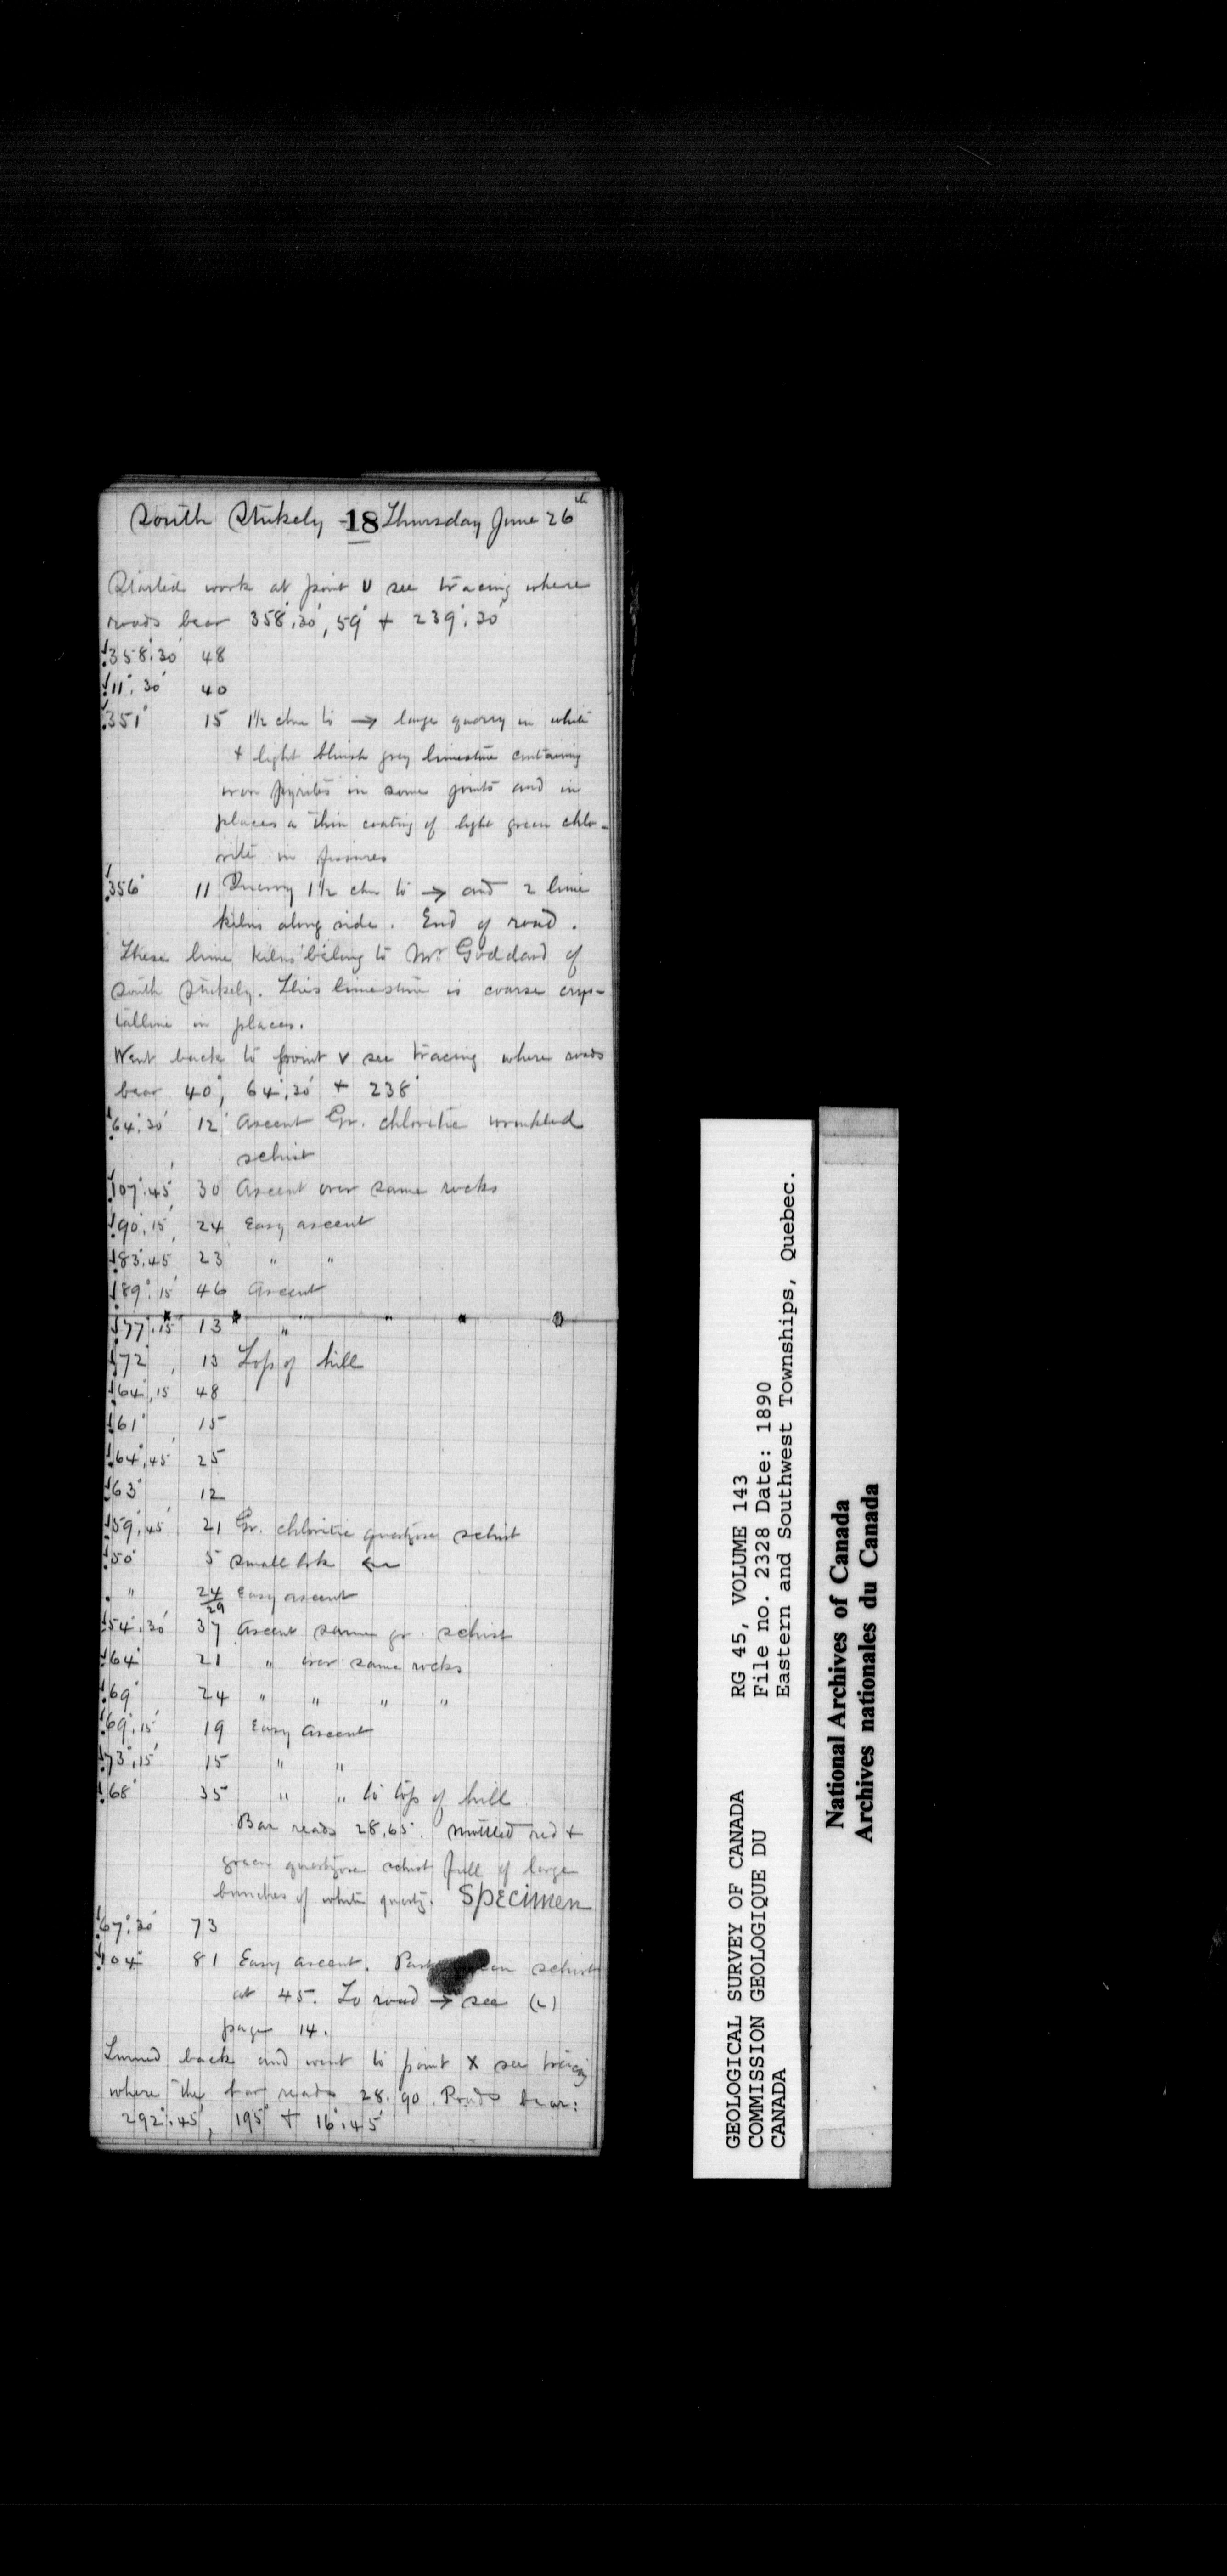 South Stukely 18 Thursday June 26th
Started work at point V see tracing where
roads bear 358°.30', 59° + 239°.30'
358°.30' 48
11°.30' 40
351° 15 1½ chn to → large quarry in white
+ light bluish grey limestone containing
iron pyrites in some joints and in
places a thin coating of light green chlo-
rite in fissures
356° 11 Quarry 1½ chn to → and 2 lime
kilns along side. End of road.
These lime kilns belong to Mr. Goddard of
South Stukely. This limestone is coarse crys-
talline in places.
Went back to point V see tracing where roads
bear 40°, 64°.30' + 238°
64°.30' 12 Ascent Gr. chloritic wrinkled
schist
107°.45' 30 Ascent over same rocks
90°.15' 24 Easy ascent
83°.45' 23 " "
89°.15' 46 Ascent
77°.15' 13 "
72° 13 Top of hill
64°.15' 48
61° 15
64°.45' 25
63° 12
59°.45' 21 Gr. chloritic quartzose schist
50° 5 Small brk ←
" 24 Easy ascent
29
54°.30' 37 Ascent same gr. schist
64° 21 " over same rocks
69° 24 " " " "
69°.15' 19 Easy ascent
73°.15' 15 " "
68° 35 " " to top of hill
Bar reads 28.65. Mottled red +
green quartzose schist full of large
bunches of white quartz. Specimen
67°.30' 73
104° 81 Easy ascent. schist
at 45. To road → see (L)
page 14.
Turned back and went to point X see tracing
where the bar reads 28.90. Roads bear:
292°.45', 195° + 16°.45'
GEOLOGICAL SURVEY OF CANADA
COMMISSION GEOLOGIQUE DU
CANADA
RG 45, VOLUME 143
File no. 2328 Date: 1890
Eastern and Southwest Townships, Quebec.
National Archives of Canada
Archives nationales du Canada